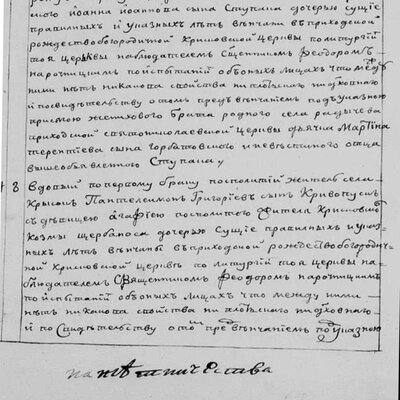 мою іоанна іоаннова сына Ступака дочерью сущіе
правилныхъ и указныхъ лѣтъ вѣнчаны въ приходской
рождество богородичной Крисовской церквы по литургіи
тоя церквы наблюдателемъ Священикомъ Феодоромъ
нарочицкимъ по испытаніи обоихъ лицахъ что между
ними нѣтъ никакова свойства ни плотскаго ни духовнаго
и по свидѣтельству о томъ предъ вѣнчаніемъ подъ указною
присягою жениховаго брата роднаго села
приходской святониколаевской церквы дячка Мартина
терентіева сына и невѣстинаго отца
вышеобъявленнаго Ступака
8 вдовый по первому браку посполитій житель села
Крысокъ Пантелеимонъ Григоріевъ сынъ Кривопусть
съ дѣвицею Агафіею посполитого жителя Крисовскаго
Козмы Щербаноса дочерью сущіе правилныхъ и указ
ныхъ лѣтъ вѣнчаны въ приходной рождество богородич
ной Крисовской церквѣ по литургіи тоя церквы на
блюдателемъ Священникомъ Феодоромъ нарочицкимъ
по испытаніи обоихъ лицахъ что между ними
нѣтъ никакова свойства ни плотскаго ни духовнаго
и по свидѣтельству о томъ предъ вѣнчаніемъ подъ указною